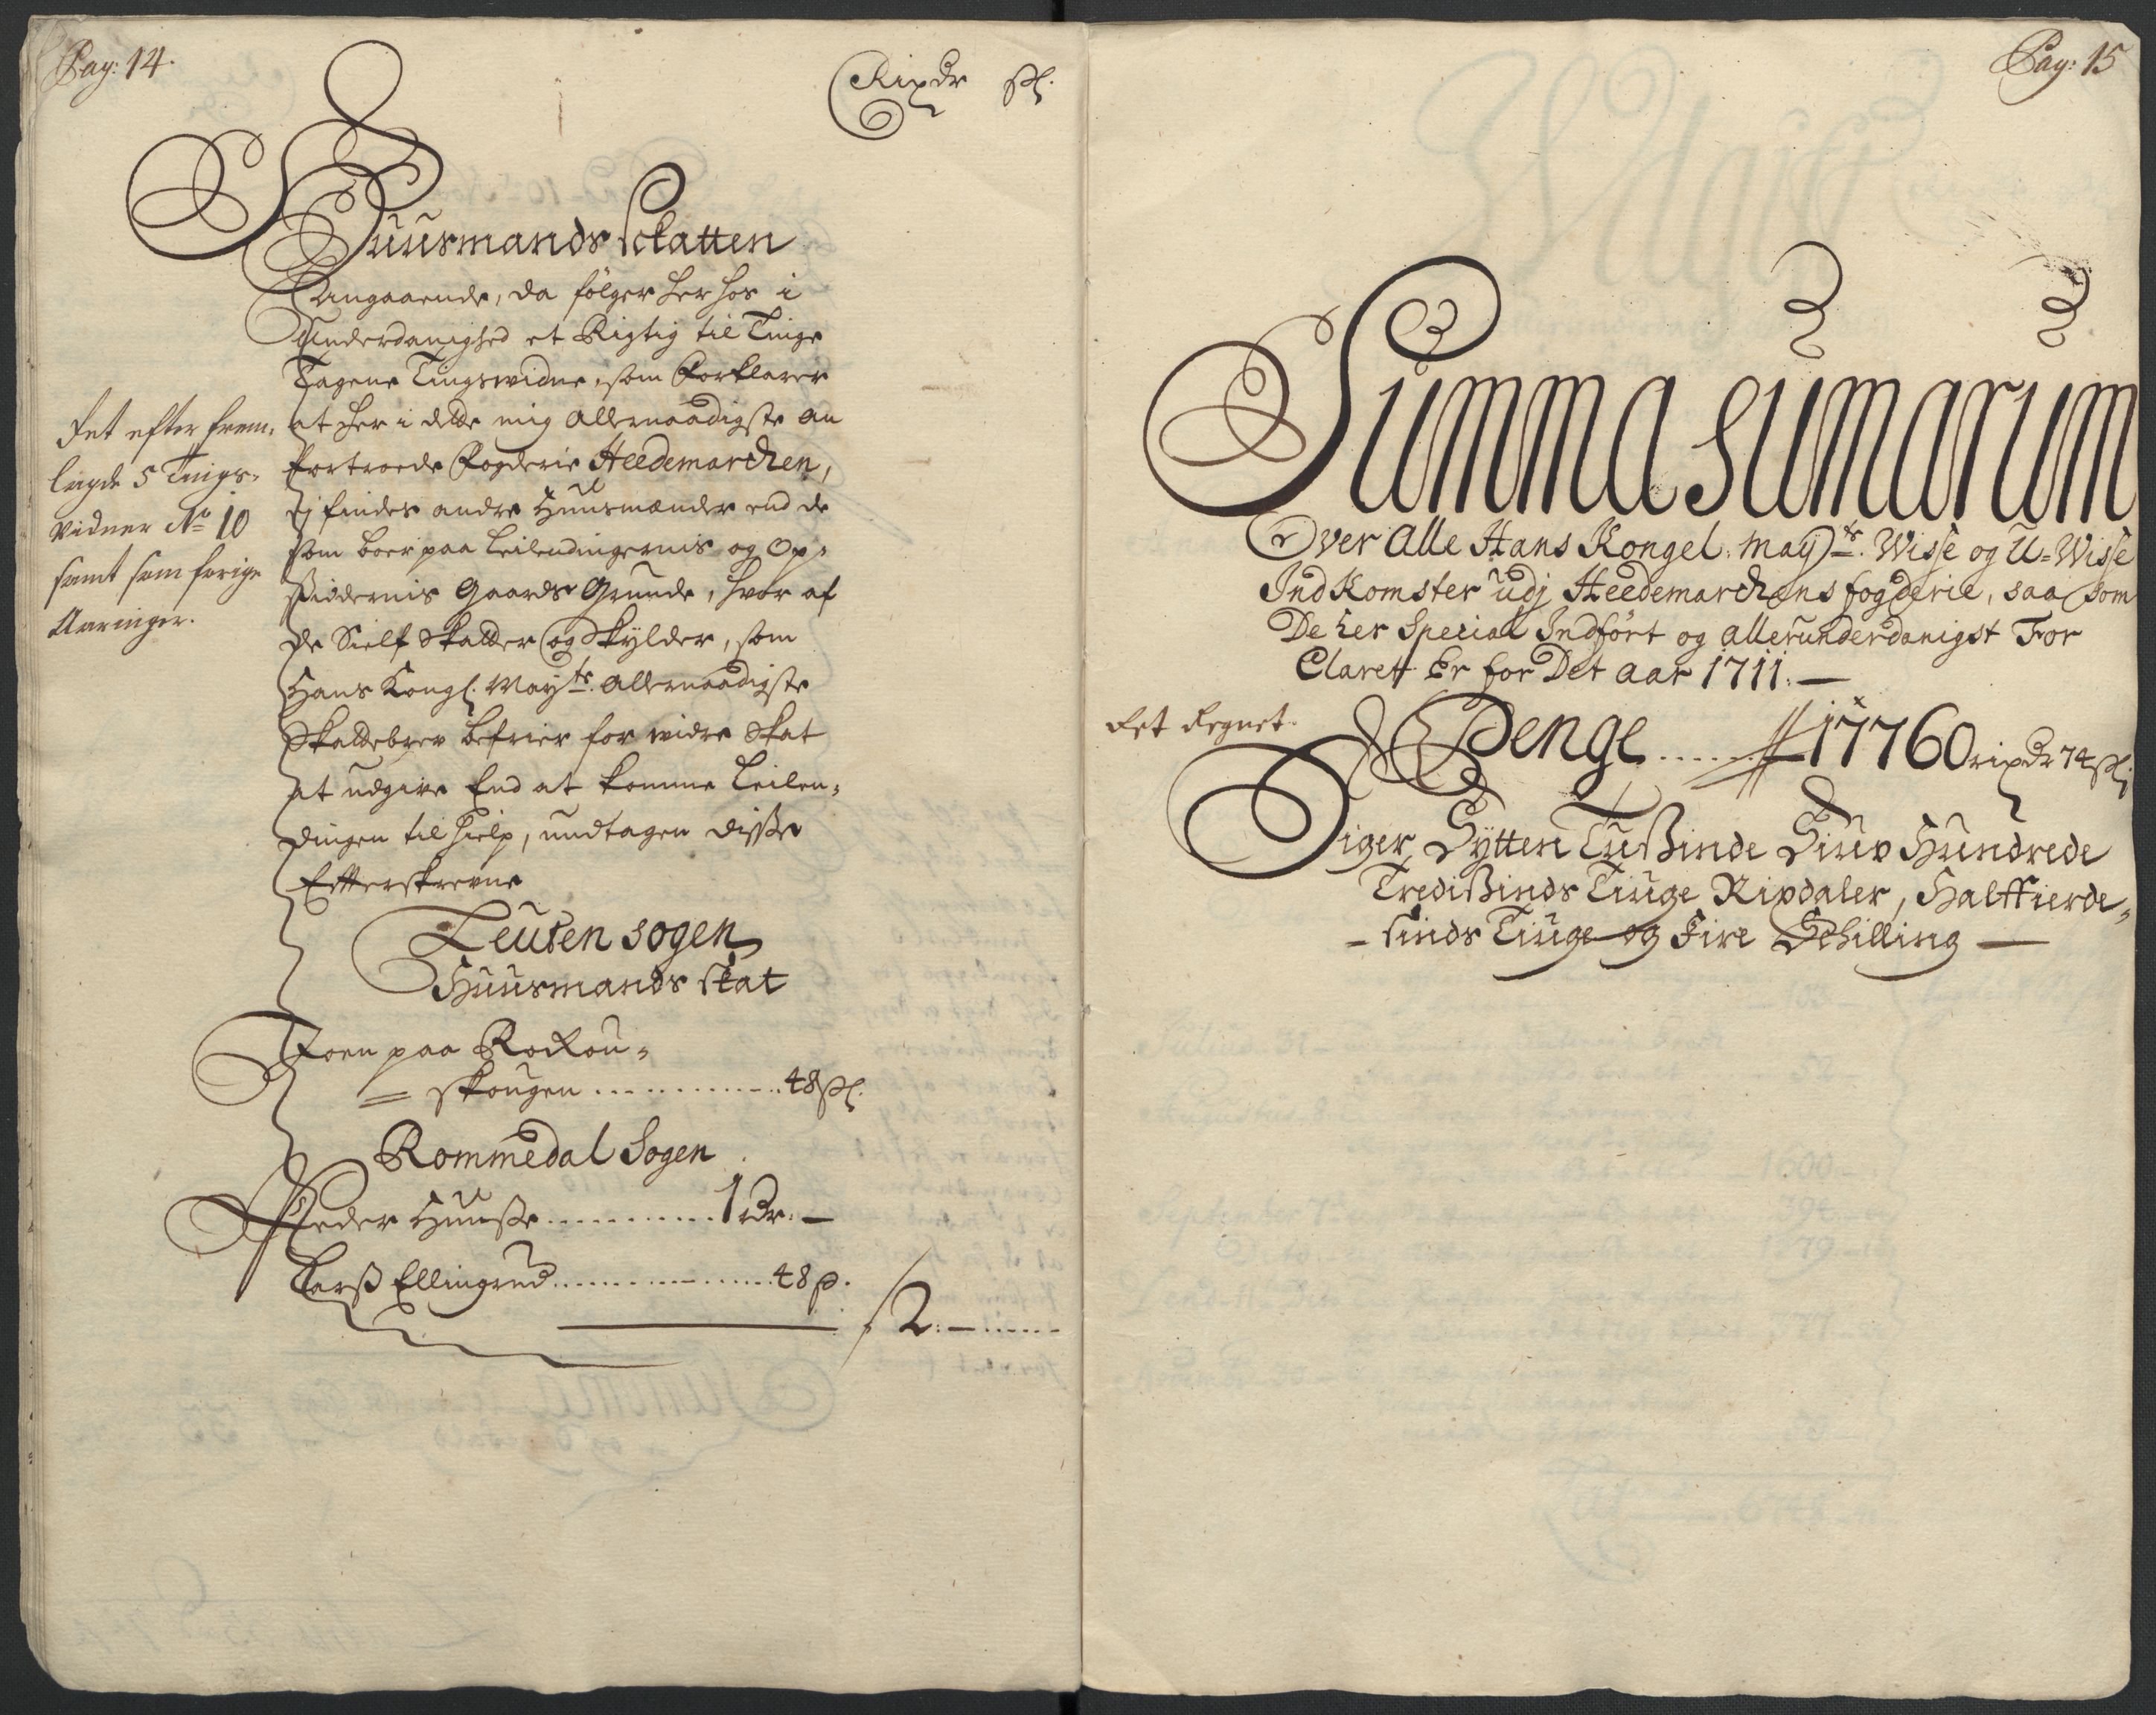 Pag: 14.
Rixdr ßl.
Huusmands Skatten
Angaaende, da følger her hos i
Underdanighed et Rigtig til Tinge
Tagene Tingswidne, som Forklarer
at her i dette mig allernaadigste an
fortroede Fogderie Heedemarchen,
ej findes andre Huusmænder end de
som boer paa Leilendingernis og Op-
sidernis Gaards Grunde, hvor af
de Sielf Skatter og Skylder, som
Hans Kongl. Mayts. allernaadigste
Skattebrev befrier for widre Skat
at udgive End at komme Leilen-
dingen til Hielp, undtagen disse
Efterskrevne
Ret efter frem-
lagde 5 Tings-
vidner No 10
samt som forige
Aaringer.
Leuten sogen
Huusmands skat
paa Rockou-
= skougen ............ 48 ßl.
Rommedal Sogen
Peder Huuße ............ 1 Rdr. —
Larß Ellingrud ............ 48 ß.
2: — ......
Pag: 15
Summa sumarum
Over Alle Hans Kongel: Mayts. Wisse og U-Wisse
IndKomster udj Heedemarchens fogderie, saa som
De her Special Indført og allerunderdanigst For
Claret Er for Det aar 1711. —
Ret Regnet.
Penge ...... 17760 rixdr 74 ßl:
Siger Sytten Tußinde Siuv Hundrede
Tredißinds Tiuge Rixdaler, Halffierde-
- sinds Tiuge og Fire Schilling —